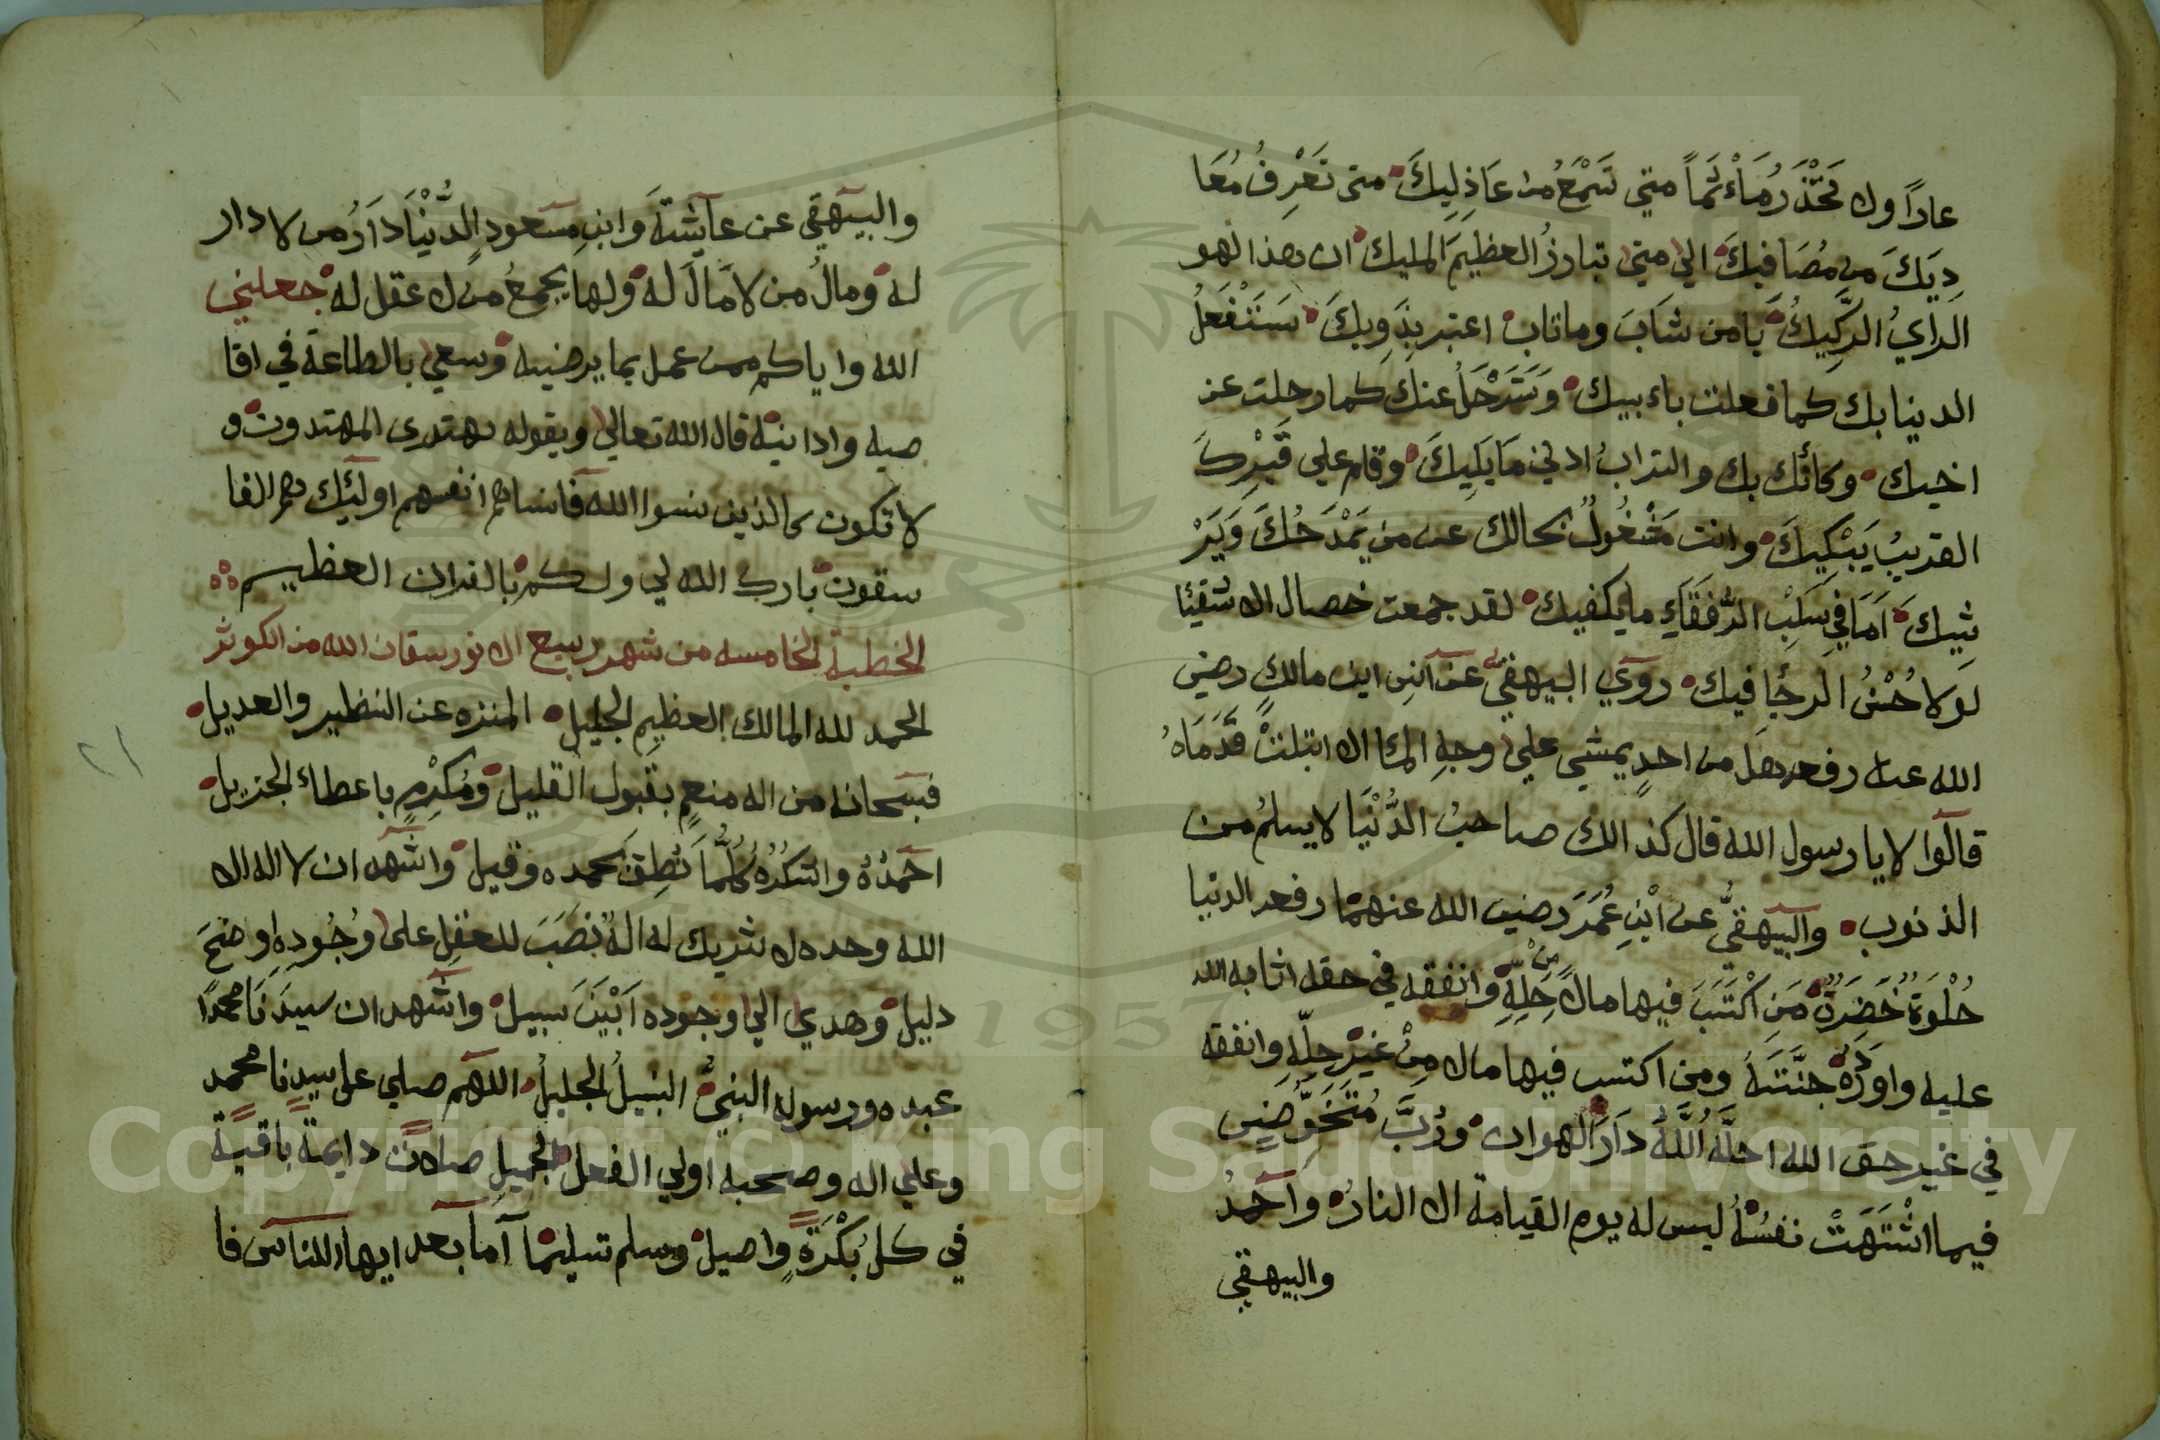 عارًا ولا تَحْذَرُ مَأْثَمًا متي تَسْمَعُ من عَاذِلِيكَ متى تَعْرِفُ مُعَا
دِيَكَ من مُصَافِيكَ الي متي تبارزُ العظيمَ المليك ان هذا لهو
الرايُ الرَّكِيكُ يا من شَابَ وما تاب اعتبر بِذَوِيكَ سَتَفْعَلُ
الدنيا بك كما فعلت باءبيك وَسَتَرْحَلُ عنك كما رحلت عن
اخيك وكأنك بك والترابُ ادني مَا يَلِيكَ وقام علي قَبْرِكَ
القريبُ يَبْكِيكَ وانت مَشْغُولٌ بحالك عن من يَمْدَحُكَ وَيَرْ
ثِيكَ اَمَا فِي سَلْبِ الرُّفَقَاءِ ما يكفيك لقد جمعت خصال الاشقيا
لولا حُسْنُ الرجا فيك رَوَي البيهقي عن انس ابن مالكٍ رضي
الله عنه رفعه هَل من احدٍ يمشي علي وجهِ الماء الا ابتلتْ قَدَمَاهُ
قالوا لا يا رسول الله قال كذالك صاحبُ الدُّنْيَا لا يسلمُ من
الذنوب والبيهقيُّ عن ابْنِ عُمَرَ رضي الله عنهما رفعه الدنيا
حُلْوَةٌ خَضِرَةٌ مَنِ اكْتَسَبَ فيها مالاً من حِلِّهِ وانفقه في حقه اثابه الله
عليه واورده جنَّتَهُ ومن اكتسب فيها مالا مِنْ غيْرِ حِلِّهِ وانفقه
في غير حق الله احلَّهُ اللَّهُ دَارَ الهوان ورُبَّ مُتَخَوِّضٍ
فيما اشْتَهَتْ نفسُهُ ليس له يوم القيامة الا النارُ وَاَحْمَدُ
والبيهقي
والبيهقي عن عايشةَ وابنِ مسعودٍ الدُّنْيَا دَارُ من لا دار
له ومالُ من لا مَالَ له ولها يجمعُ من لا عقل له جعلني
الله واياكم ممن عمل بما يرضيه وسعي بالطاعة في اقا
صيه وادانيه قال الله تعالي وبقوله يهتدي المهتدون و
لا تكون كالذين نسوا الله فانساهم انفسهم اوليك هم الفا
سقون بارك الله لي ولكم بالقران العظيم
الخطبة الخامسه من شهر ربيع الانور سقانا الله من الكوثر
الحمد لله المالك العظيم الجليل المنزه عن النظير والعديل
فسبحانه من اله منعمٍ بقبول القليل ومُكْرِمٍ باعطاء الجزيل
احمَدُهُ واشكُرُهُ كُلَّمَا نُطِقَ بحمده وقيل واشهد ان لا اله الا
الله وحده لا شريك له الهٌ نصَبَ للعقلِ علي وُجُودِهِ اوضحَ
دليل وهدي الي وجوده اَبْيَنَ سبيل واشهد ان سيدَنَا محمدًا
عبده ورسوله النبيُّ النبيلُ الجليلُ اللهم صلي علي سيدنا محمد
وعلي اله وصحبه اولي الفعل الجميل صلاةً دايمةً باقيةً
في كل بُكْرَةٍ واصيل وسلم تسليمًا اَما بعد ايها الناس فا
٢١